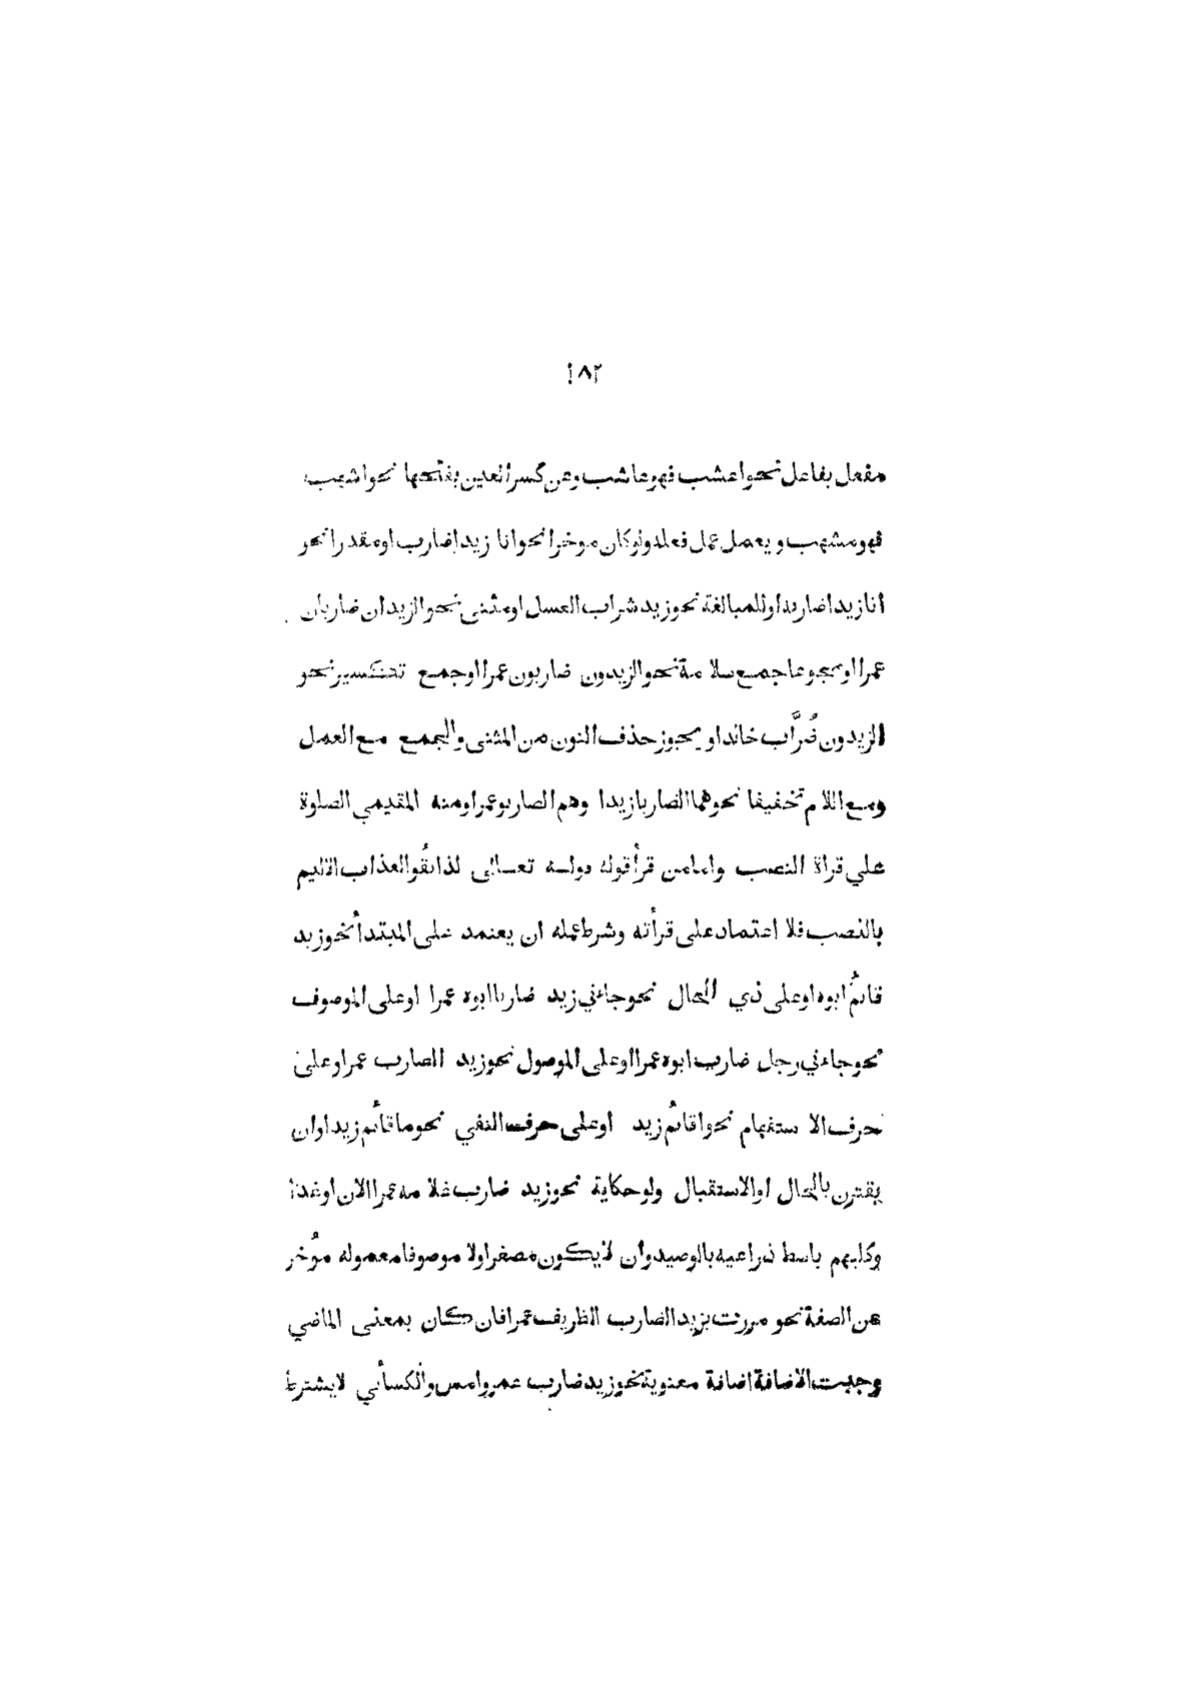 ١٨٢
مفعل بفاعل نحو اعشب فهو عاشب وعن كسر العين بفتحها نحو اشهب
فهو مشهب و يعمل عمل فعله ولو كان موخرا نحو انا زيدا ضارب او مقدرا نحو
انا زيدا ضاربه او للمبالغة نحو زيد شراب العسل او مثنى نحو الزيدان ضاربان
عمرا او مجموعا جمع سلامة نحو الزيدون ضاربون عمرا او جمع تكسير نحو
الزيدون ضُرَّاب خالدا و يجوز حذف النون من المثنى والجمع مع العمل
ومع اللام تخفيفا نحو هما الضاربا زيدا وهم الضاربو عمرا ومنه المقيمي الصلوة
علي قراة النصب واما من قرأ قوله تعالى لذائقو العذاب الاليم
بالنصب فلا اعتماد على قرأته وشرط عمله ان يعتمد على المبتدأ نحو زيد
قائم ابوه او على ذي الحال نحو جاءني زيد ضاربا ابوه عمرا او على الموصوف
نحو جاءني رجل ضارب ابوه عمرا او على الموصول نحو زيد الضارب عمرا وعلى
حرف الاستفهام نحو اقائم زيد او على حرف النفي نحو ما قائم زيد او ان
يقترن بالحال او الاستقبال ولو حكاية نحو زيد ضارب غلامه عمرا الان او غدا
وكلبهم باسط ذراعيه بالوصيد وان لا يكون مصغرا ولا موصوفا معموله مؤخر
عن الصفة نحو مررت بزيد الضارب الظريف عمرا فان كان بمعنى الماضي
وجبت الاضافة اضافة معنوية نحو زيد ضارب عمرو امس والكسأي لايشترط